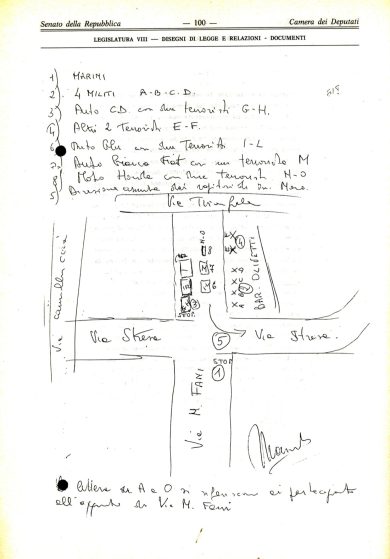 Senato della Repubblica — 100 — Camera dei Deputati
LEGISLATURA VIII — DISEGNI DI LEGGE E RELAZIONI - DOCUMENTI
1) MARINI
2) 4 MILITI A-B-C.D.
3) Auto C.D. con due terroristi G-H.
4) Altri 2 Terroristi E-F.
6) Auto blu con due Terroristi I-L
7) Auto Bianca Fiat con un terrorista M
8) Moto Honda con due terroristi N-O
5) Direzione assunta dai rapitori di On. Moro.
Via Trionfale
Via Camilluccia
N-O
BAR-OLIVETTI
STOP
Via Stresa
5
Via Stresa.
STOP
1
Via M. FANI
Lettere da A a O si riferiscono ai partecipanti
all'agguato di Via M. Fani